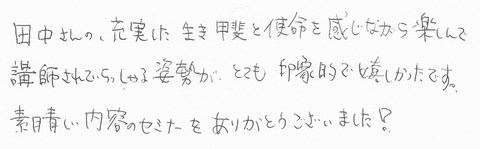 田中さんの、充実した生き甲斐と使命を感じながら楽しんで
講師されていらっしゃる姿勢が、とても印象的で嬉しかったです。
素晴しい内容のセミナーをありがとうございました！